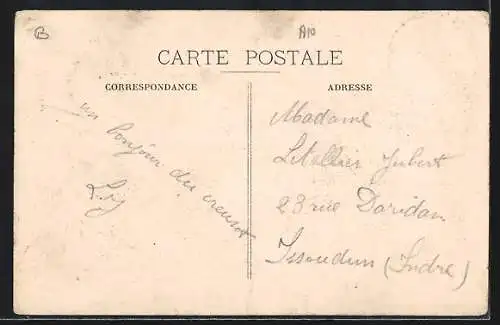 B
A10
CARTE POSTALE
CORRESPONDANCE
un bonjour du creusot
L.J
ADRESSE
Madame
Letellier Jubert
23 rue Daridan
Issoudun (Indre)